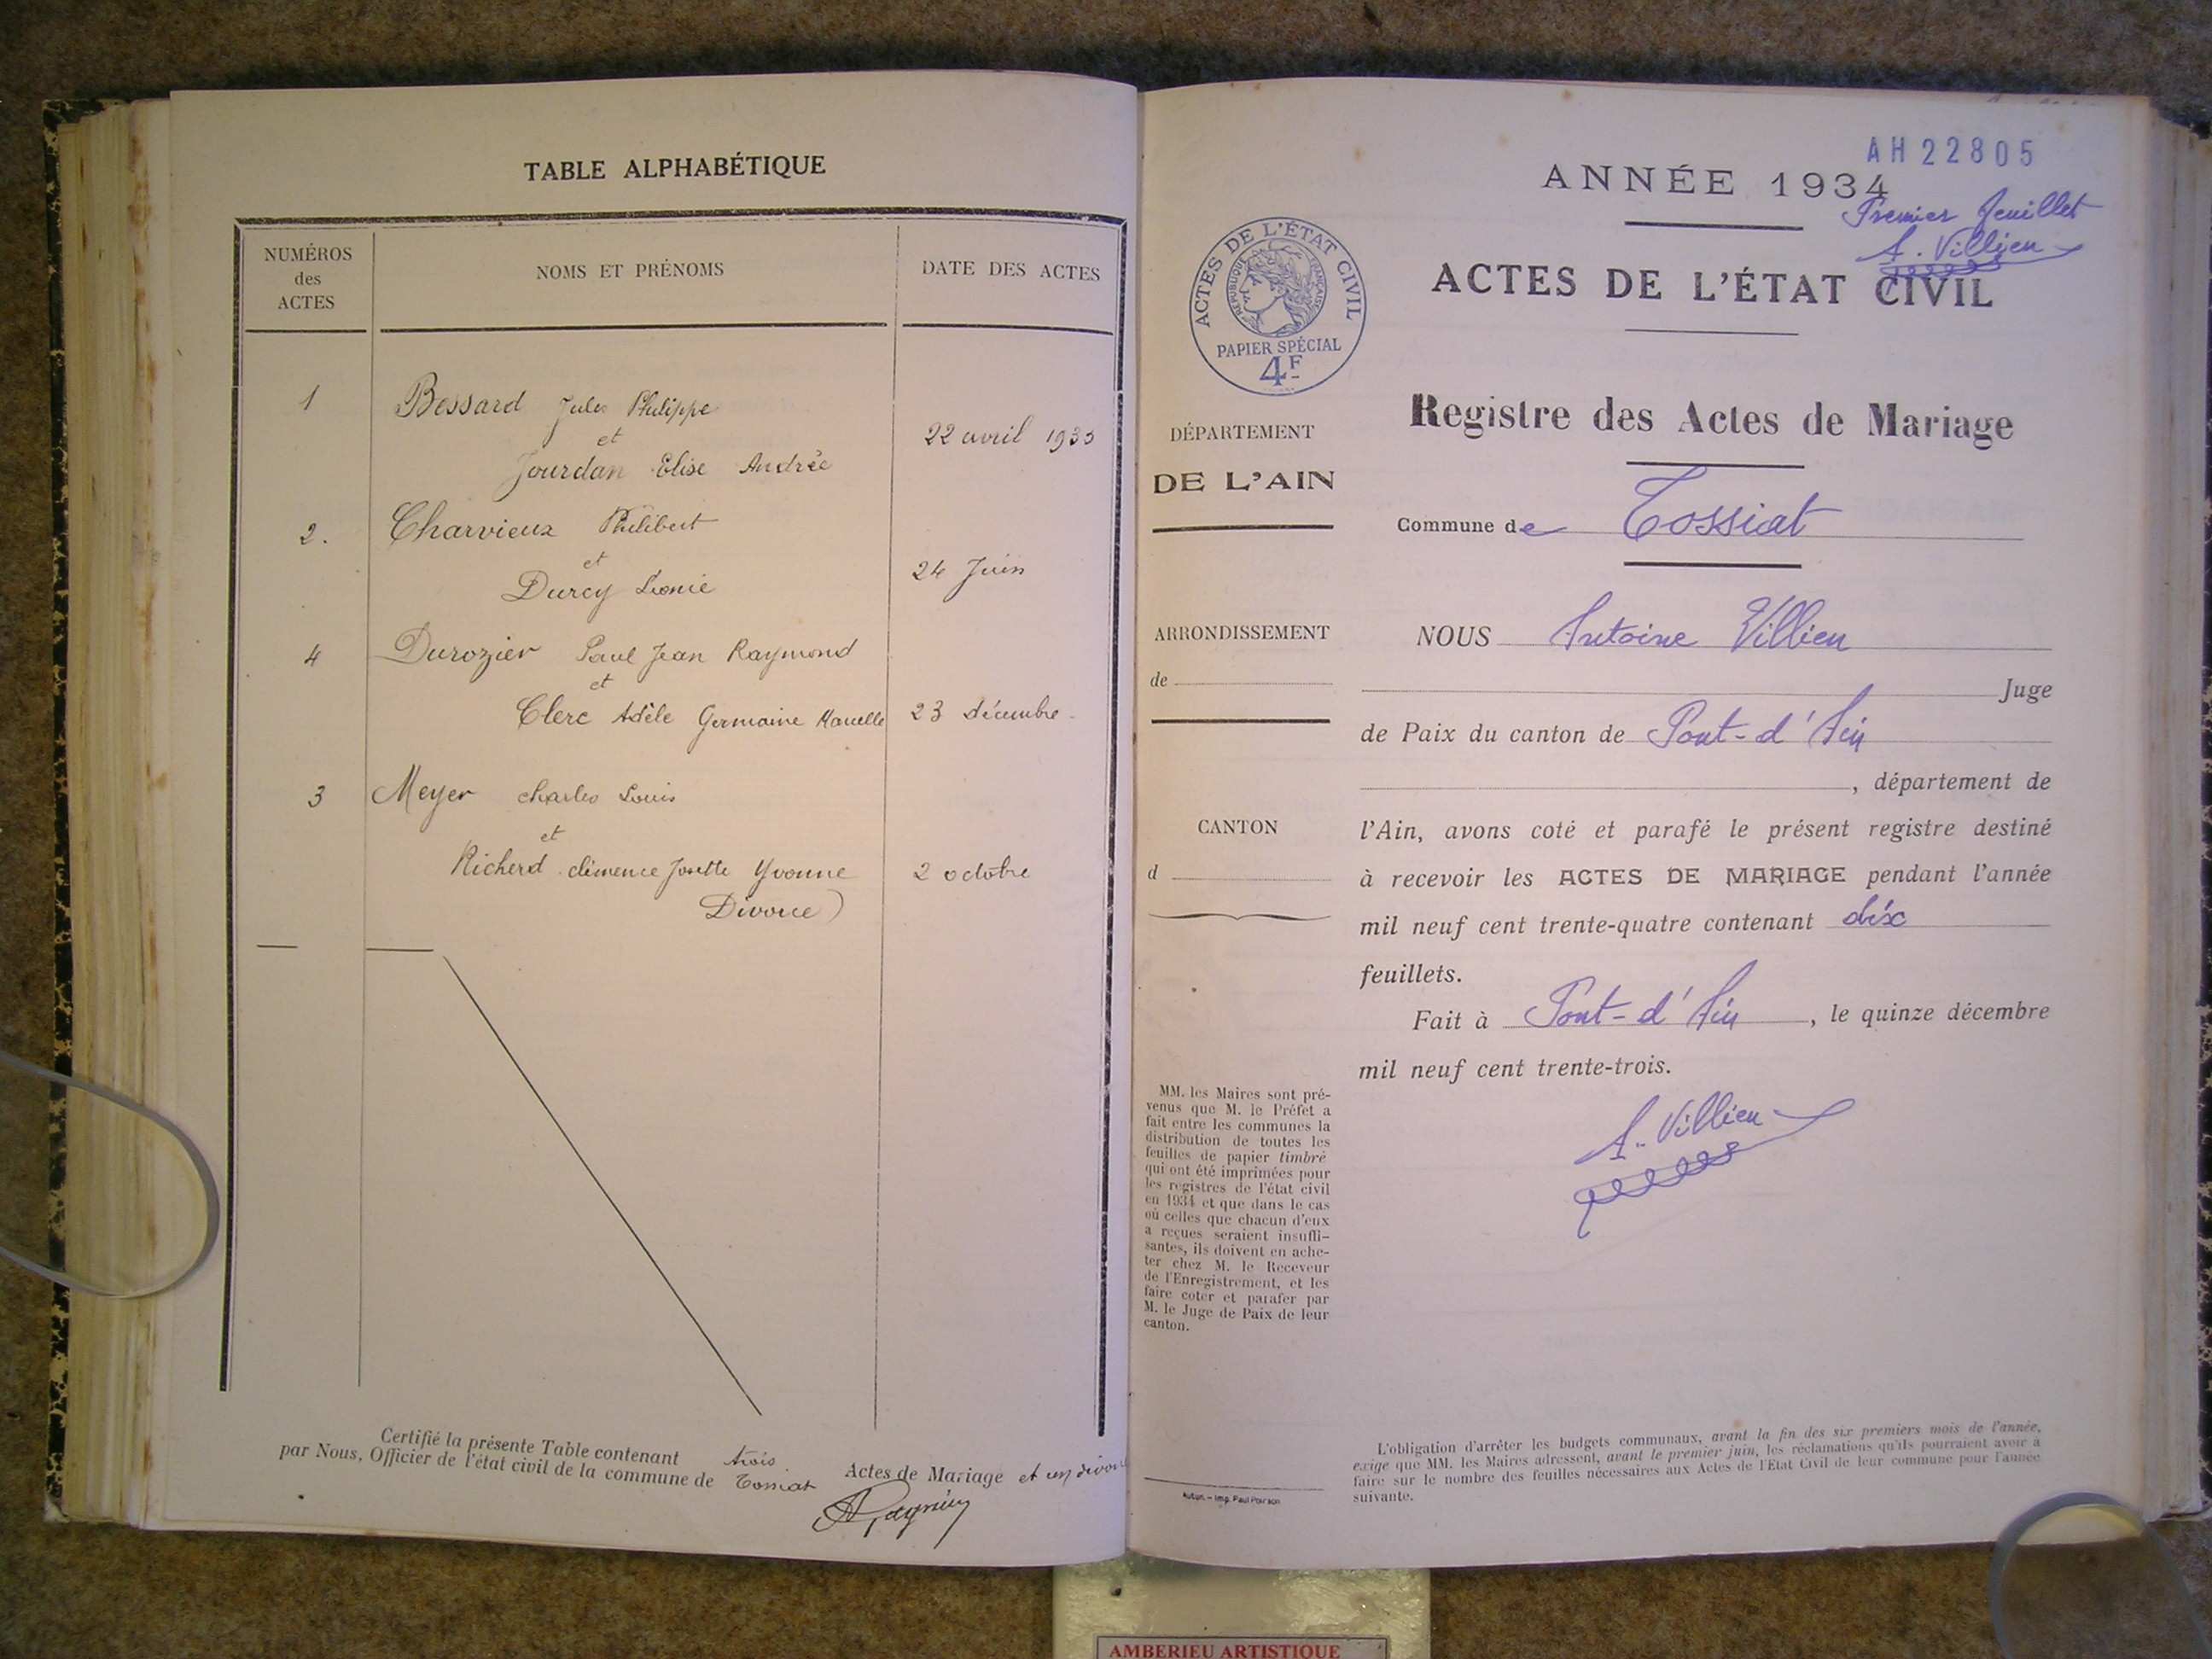 TABLE ALPHABÉTIQUE
NUMÉROS
des
ACTES
NOMS ET PRÉNOMS
DATE DES ACTES
1
Bessard Jules Philippe
et
Jourdan Elise Andrée
22 avril 1933
2.
Charvieux Philibert
et
Durcy Léonie
24 Juin
4
Durozier Paul Jean Raymond
et
Clerc Adèle Germaine Marcelle
23 décembre
3
Meyer charles Louis
et
Richerd clémence Josette Yvonne
2 octobre
Divorce)
Certifié la présente Table contenant trois Actes de Mariage et un divorce
par Nous, Officier de l'état civil de la commune de Tossiat
AH22805
ANNÉE 1934
Premier feuillet
A. Villien
ACTES DE L'ÉTAT CIVIL
ACTES DE L'ÉTAT CIVIL
RÉPUBLIQUE FRANÇAISE
PAPIER SPÉCIAL
4F
Registre des Actes de Mariage
DÉPARTEMENT
DE L'AIN
Commune de Tossiat
ARRONDISSEMENT
de
CANTON
d
NOUS Antoine Villien
Juge
de Paix du canton de Pont-d'Ain
, département de
l'Ain, avons coté et parafé le présent registre destiné
à recevoir les ACTES DE MARIAGE pendant l'année
mil neuf cent trente-quatre contenant dix
feuillets.
Fait à Pont-d'Ain, le quinze décembre
mil neuf cent trente-trois.
A. Villien
MM. les Maires sont pré-
venus que M. le Préfet a
fait entre les communes la
distribution de toutes les
feuilles de papier timbré
qui ont été imprimées pour
les registres de l'état civil
en 1934 et que dans le cas
où celles que chacun d'eux
a reçues seraient insuffi-
santes, ils doivent en ache-
ter chez M. le Receveur
de l'Enregistrement, et les
faire coter et parafer par
M. le Juge de Paix de leur
canton.
L'obligation d'arrêter les budgets communaux, avant la fin des six premiers mois de l'année,
exige que MM. les Maires adressent, avant le premier juin, les réclamations qu'ils pourraient avoir à
faire sur le nombre des feuilles nécessaires aux Actes de l'Etat Civil de leur commune pour l'année
suivante.
Imp. Paul
AMBERIEU ARTISTIQUE